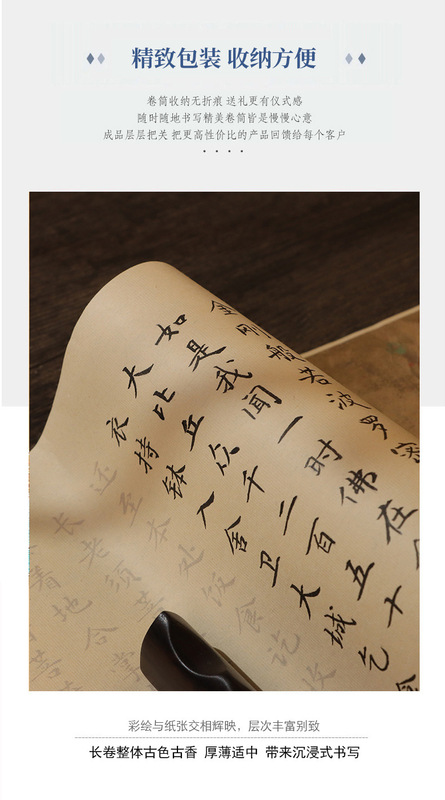 精致包装 收纳方便
卷筒收纳无折痕 送礼更有仪式感
随时随地书写精美卷筒皆是慢慢心意
成品层层把关 把更高性价比的产品回馈给每个客户
金刚般若波罗密
如是我闻一时佛在
大比丘众千二百五十
衣持钵入舍卫大城乞食
还至本处饭食讫收
长老须菩
着地合掌
彩绘与纸张交相辉映，层次丰富别致
长卷整体古色古香 厚薄适中 带来沉浸式书写